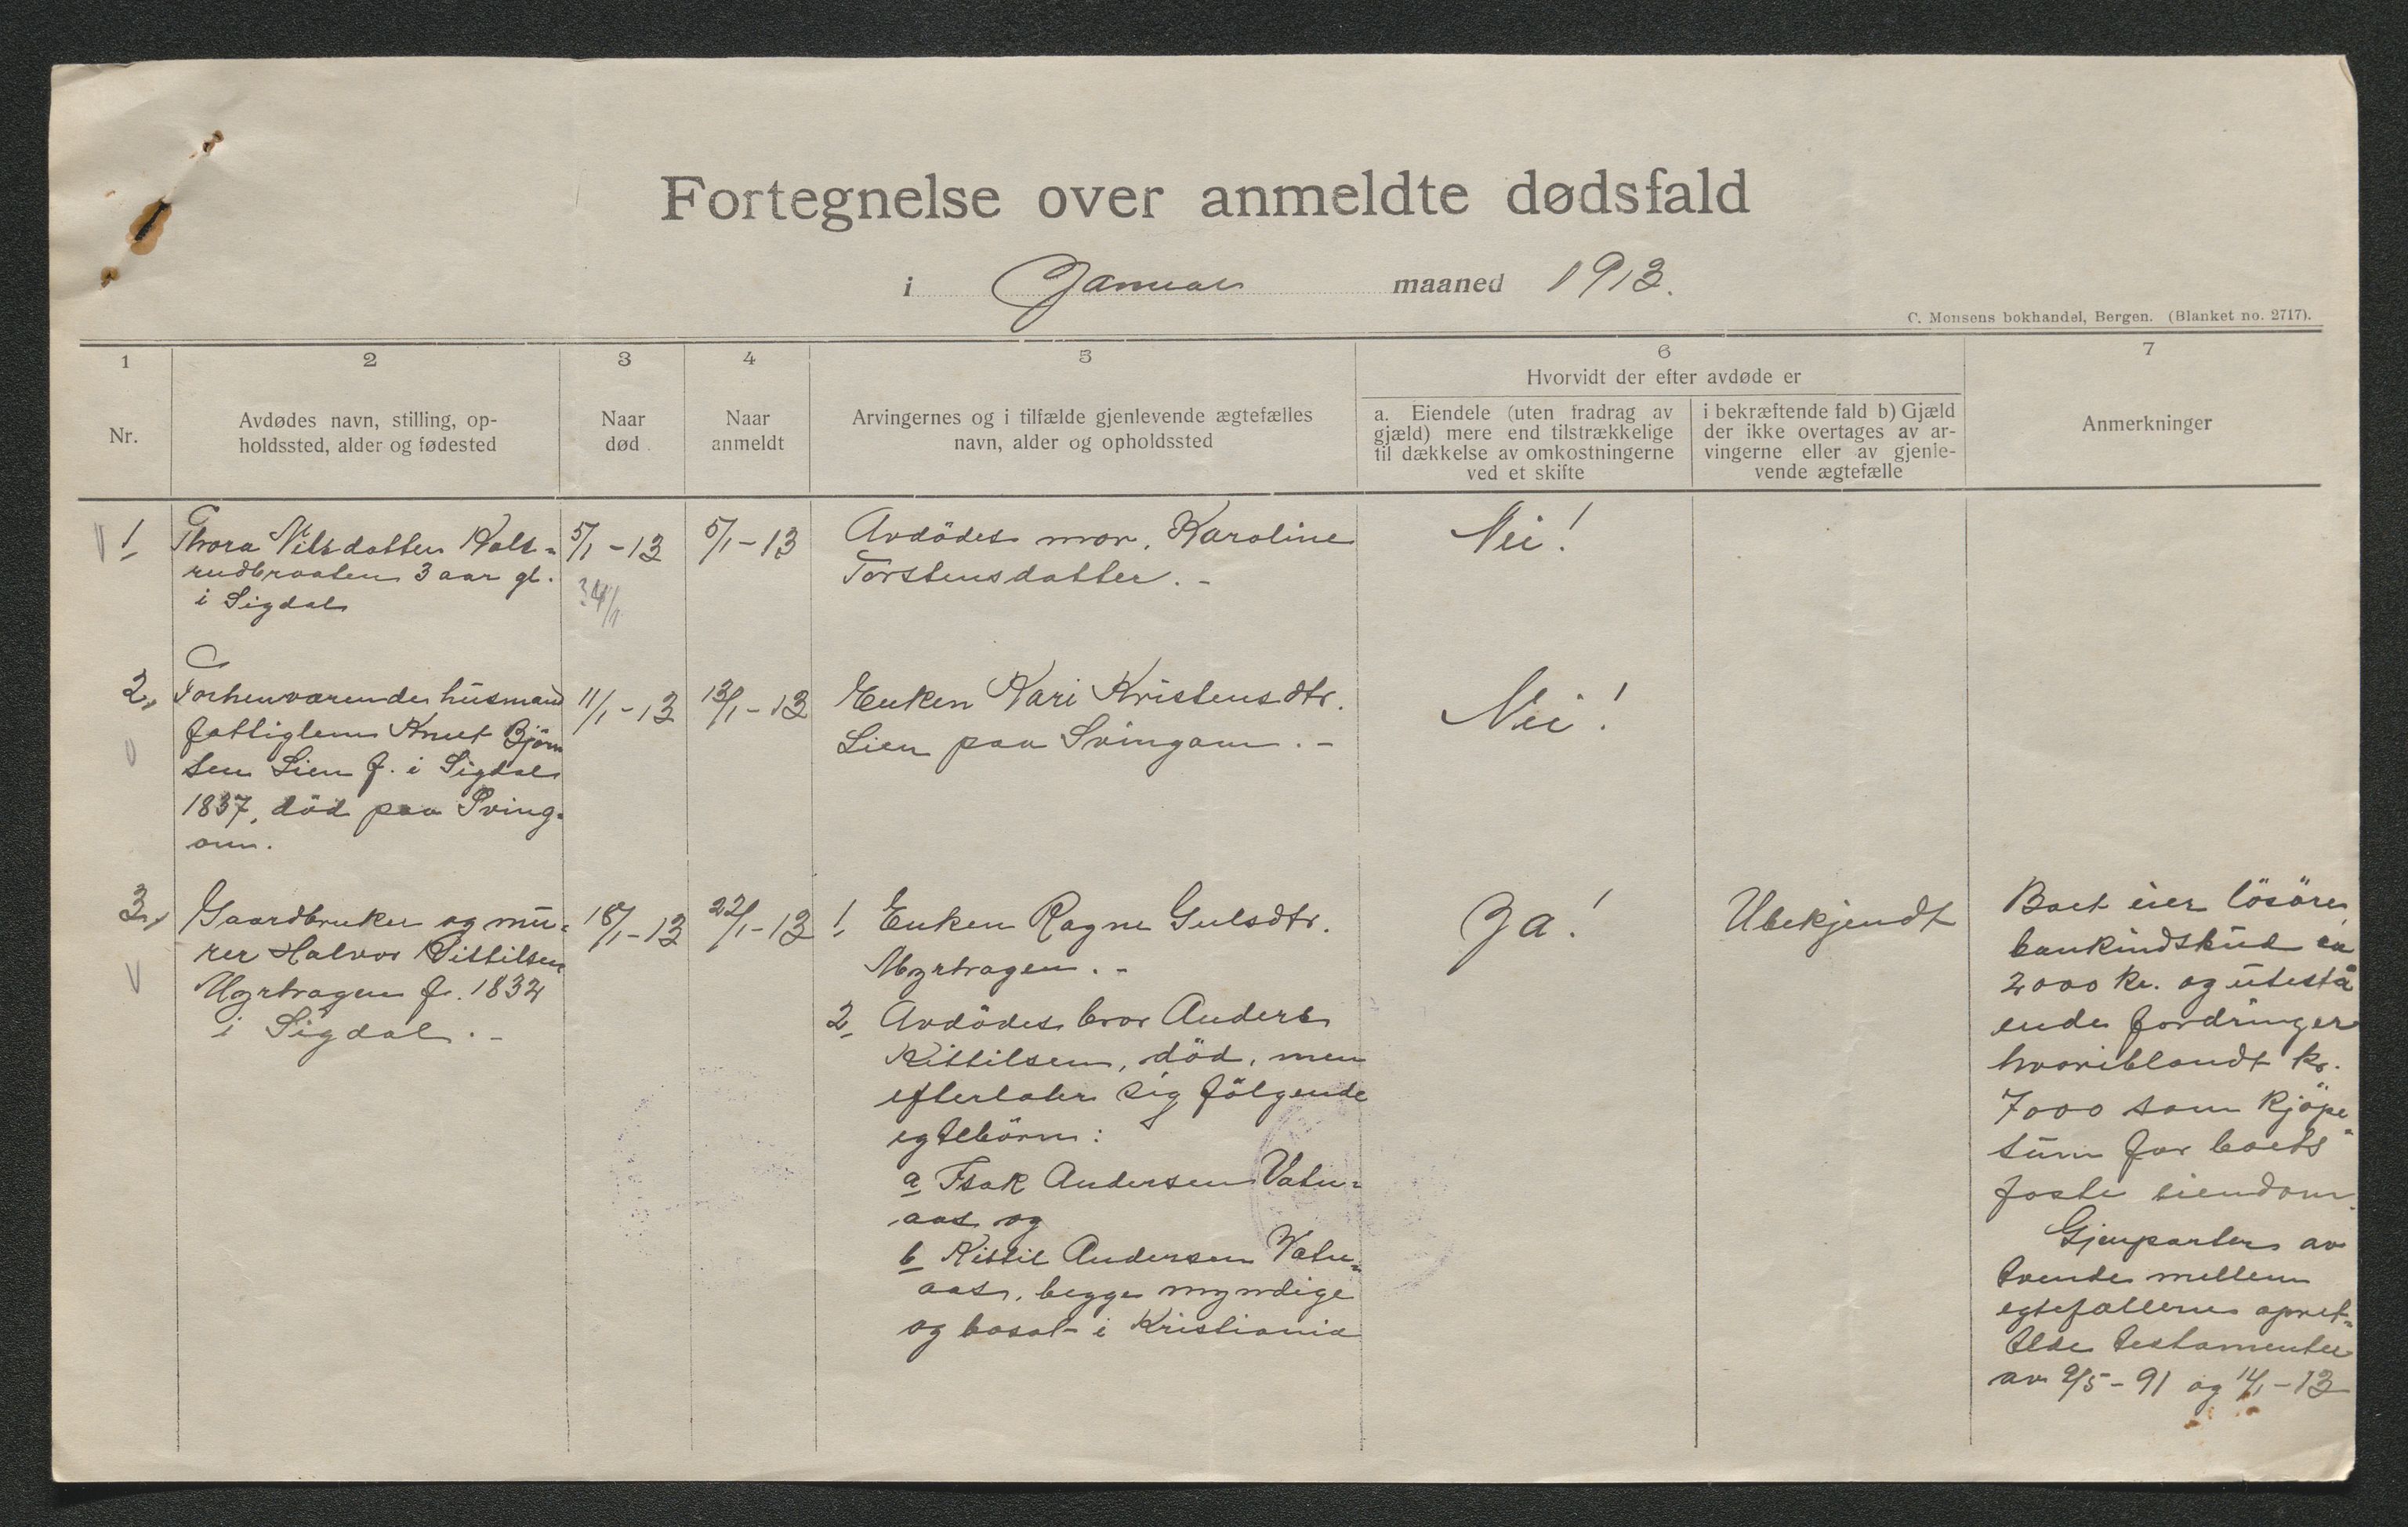 Fortegnelse over anmeldte dødsfald
i Januar maaned 1913.
C. Monsens bokhandel, Bergen. (Blanket no. 2717).
1
2
3
4
5
6
7
Nr.
Avdødes navn, stilling, op-
holdssted, alder og fødested
Naar
død
Naar
anmeldt
Arvingernes og i tilfælde gjenlevende ægtefælles
navn, alder og opholdssted
Hvorvidt der efter avdøde er
a. Eiendele (uten fradrag av
gjæld) mere end tilstrækkelige
til dækkelse av omkostningerne
ved et skifte
i bekræftende fald b) Gjæld
der ikke overtages av ar-
vingerne eller av gjenle-
vende ægtefælle
Anmerkninger
1
Thora Nilsdatter Hols-
rudbraaten 3 aar gl.
i Sigdal
5/1-13
5/1-13
Avdödes mor, Karoline
Torstensdatter.-
Nei!
2,
Forhenværende husmand
fattiglem Knut Björn
sen Lien f. i Sigdal
1837, död paa Sving-
om.
11/1-13
13/1-13
Enken Kari Kristensdtr.
Lien paa Svingom.-
Nei!
3,
Gaardbruker og mu-
rer Halvor Kittilsen
Myrhagen f. 1832
i Sigdal.-
18/1-13
22/1-13
1, Enken Ragne Gulsdtr.
Myrhagen.-
2 Avdödes bror Anders
Kittilsen, död, men
efterlater sig fölgende
egtebörn:
a Isak Andersen Vatn-
aas og
b Kittil Andersen Vatn-
aas, begge myndige
og bosat i Kristiania
Ja!
Ubekjendt
Boet eier lösöre,
bankindskud ca
2000 kr. og utestå
ende fordringer
hvoriblandt kr.
7000 som kjöpe-
sum for boets
faste eiendom.
Gjenparter av
tvende mellem
egtefællerne opret-
tede testamenter
av 9/5-91 og 14/1-13